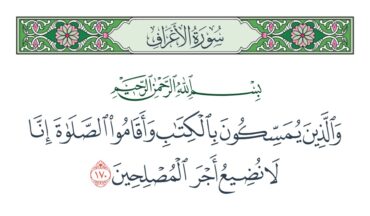 سُورَةُ الأَعْرَافِ
بِسْمِ اللَّهِ الرَّحْمَٰنِ الرَّحِيمِ
وَالَّذِينَ يُمَسِّكُونَ بِالْكِتَابِ وَأَقَامُوا الصَّلَوٰةَ إِنَّا
لَا نُضِيعُ أَجْرَ الْمُصْلِحِينَ ١٧٠